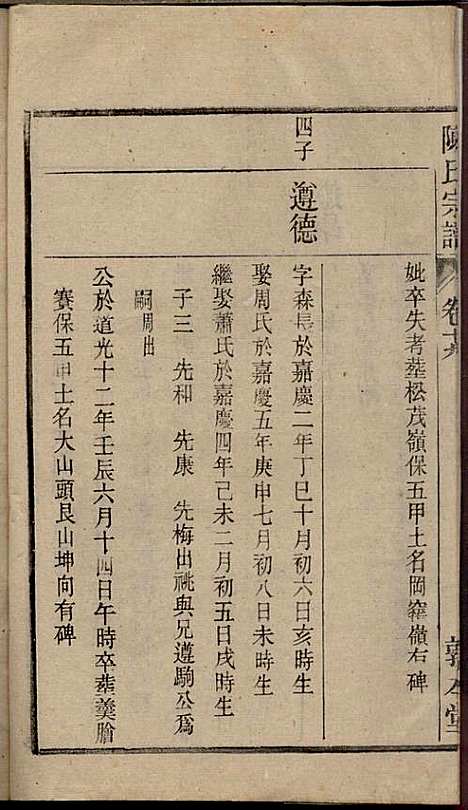 陳氏宗譜
卷十六
敦八堂
妣卒失考塟松茂嶺保五甲土名岡窰嶺右碑
四子
遵德
字森長於嘉慶二年丁巳十月初六日亥時生
娶周氏於嘉慶五年庚申七月初八日未時生
繼娶蕭氏於嘉慶四年己未二月初五日戌時生
子三 先和 先康 先梅出祧與兄遵駒公爲
嗣周出
公於道光十二年壬辰六月十四日午時卒塟羹膾
賽保五甲土名大山頭艮山坤向有碑